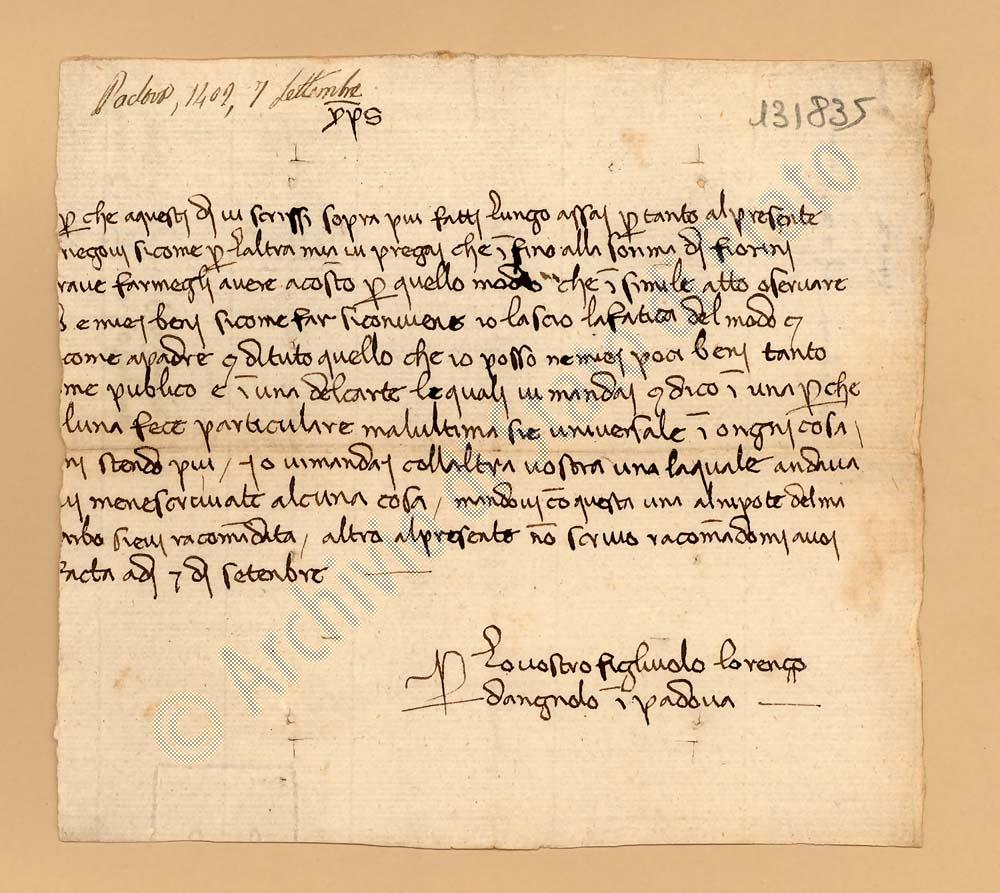 Padova, 1402, 7 settembre
131835
yps
per che aquesti dj vi scrissi sopra piu fatti lungo assai per tanto alpresente
priegovi sicome per laltra mia vi pregai che infino alla somma dj fiorini
farmegli avere acosto per quello modo che in simile atto oservare
e miej benj sicome far siconviene io lascio lafatica del modo
come apadre dituto quello che io posso nemiej poci benj tanto
me publico e in una delcarte lequali vi mandaj dico in una perche
luna fece particulare malultima sie universale in ongnj cosa /
stendo piu / io vimandaj collaltra vostra una laquale andava
menescrivate alcuna cosa / mandovi con questa una alnipote delma
sievi racomandata / altro alpresente non scrivo racomandomi avoi
Facta adj 7 dj setenbre
Lo vostro figliuolo lorenço
dangnolo in padova
© Archivio di Stato di Prato